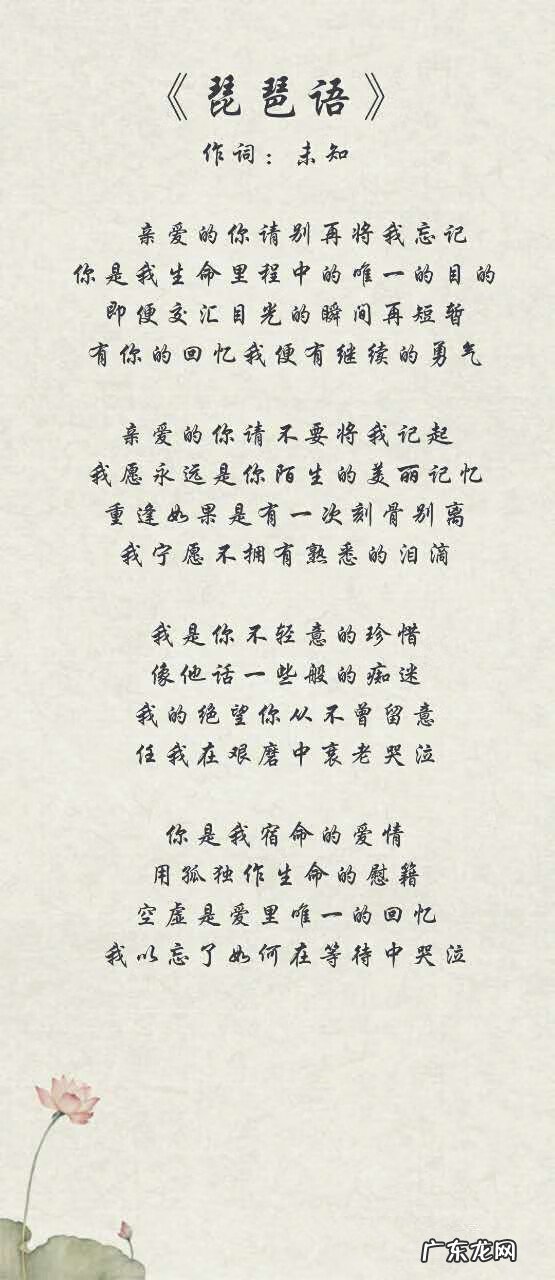 《琵琶语》
作词：未知
亲爱的你请别再将我忘记
你是我生命里程中的唯一的目的
即便交汇目光的瞬间再短暂
有你的回忆我便有继续的勇气
亲爱的你请不要将我记起
我愿永远是你陌生的美丽记忆
重逢如果是有一次刻骨别离
我宁愿不拥有熟悉的泪滴
我是你不轻意的珍惜
像他话一些般的痴迷
我的绝望你从不曾留意
任我在艰磨中衰老哭泣
你是我宿命的爱情
用孤独作生命的慰籍
空虚是爱里唯一的回忆
我以忘了如何在等待中哭泣
广东龙网